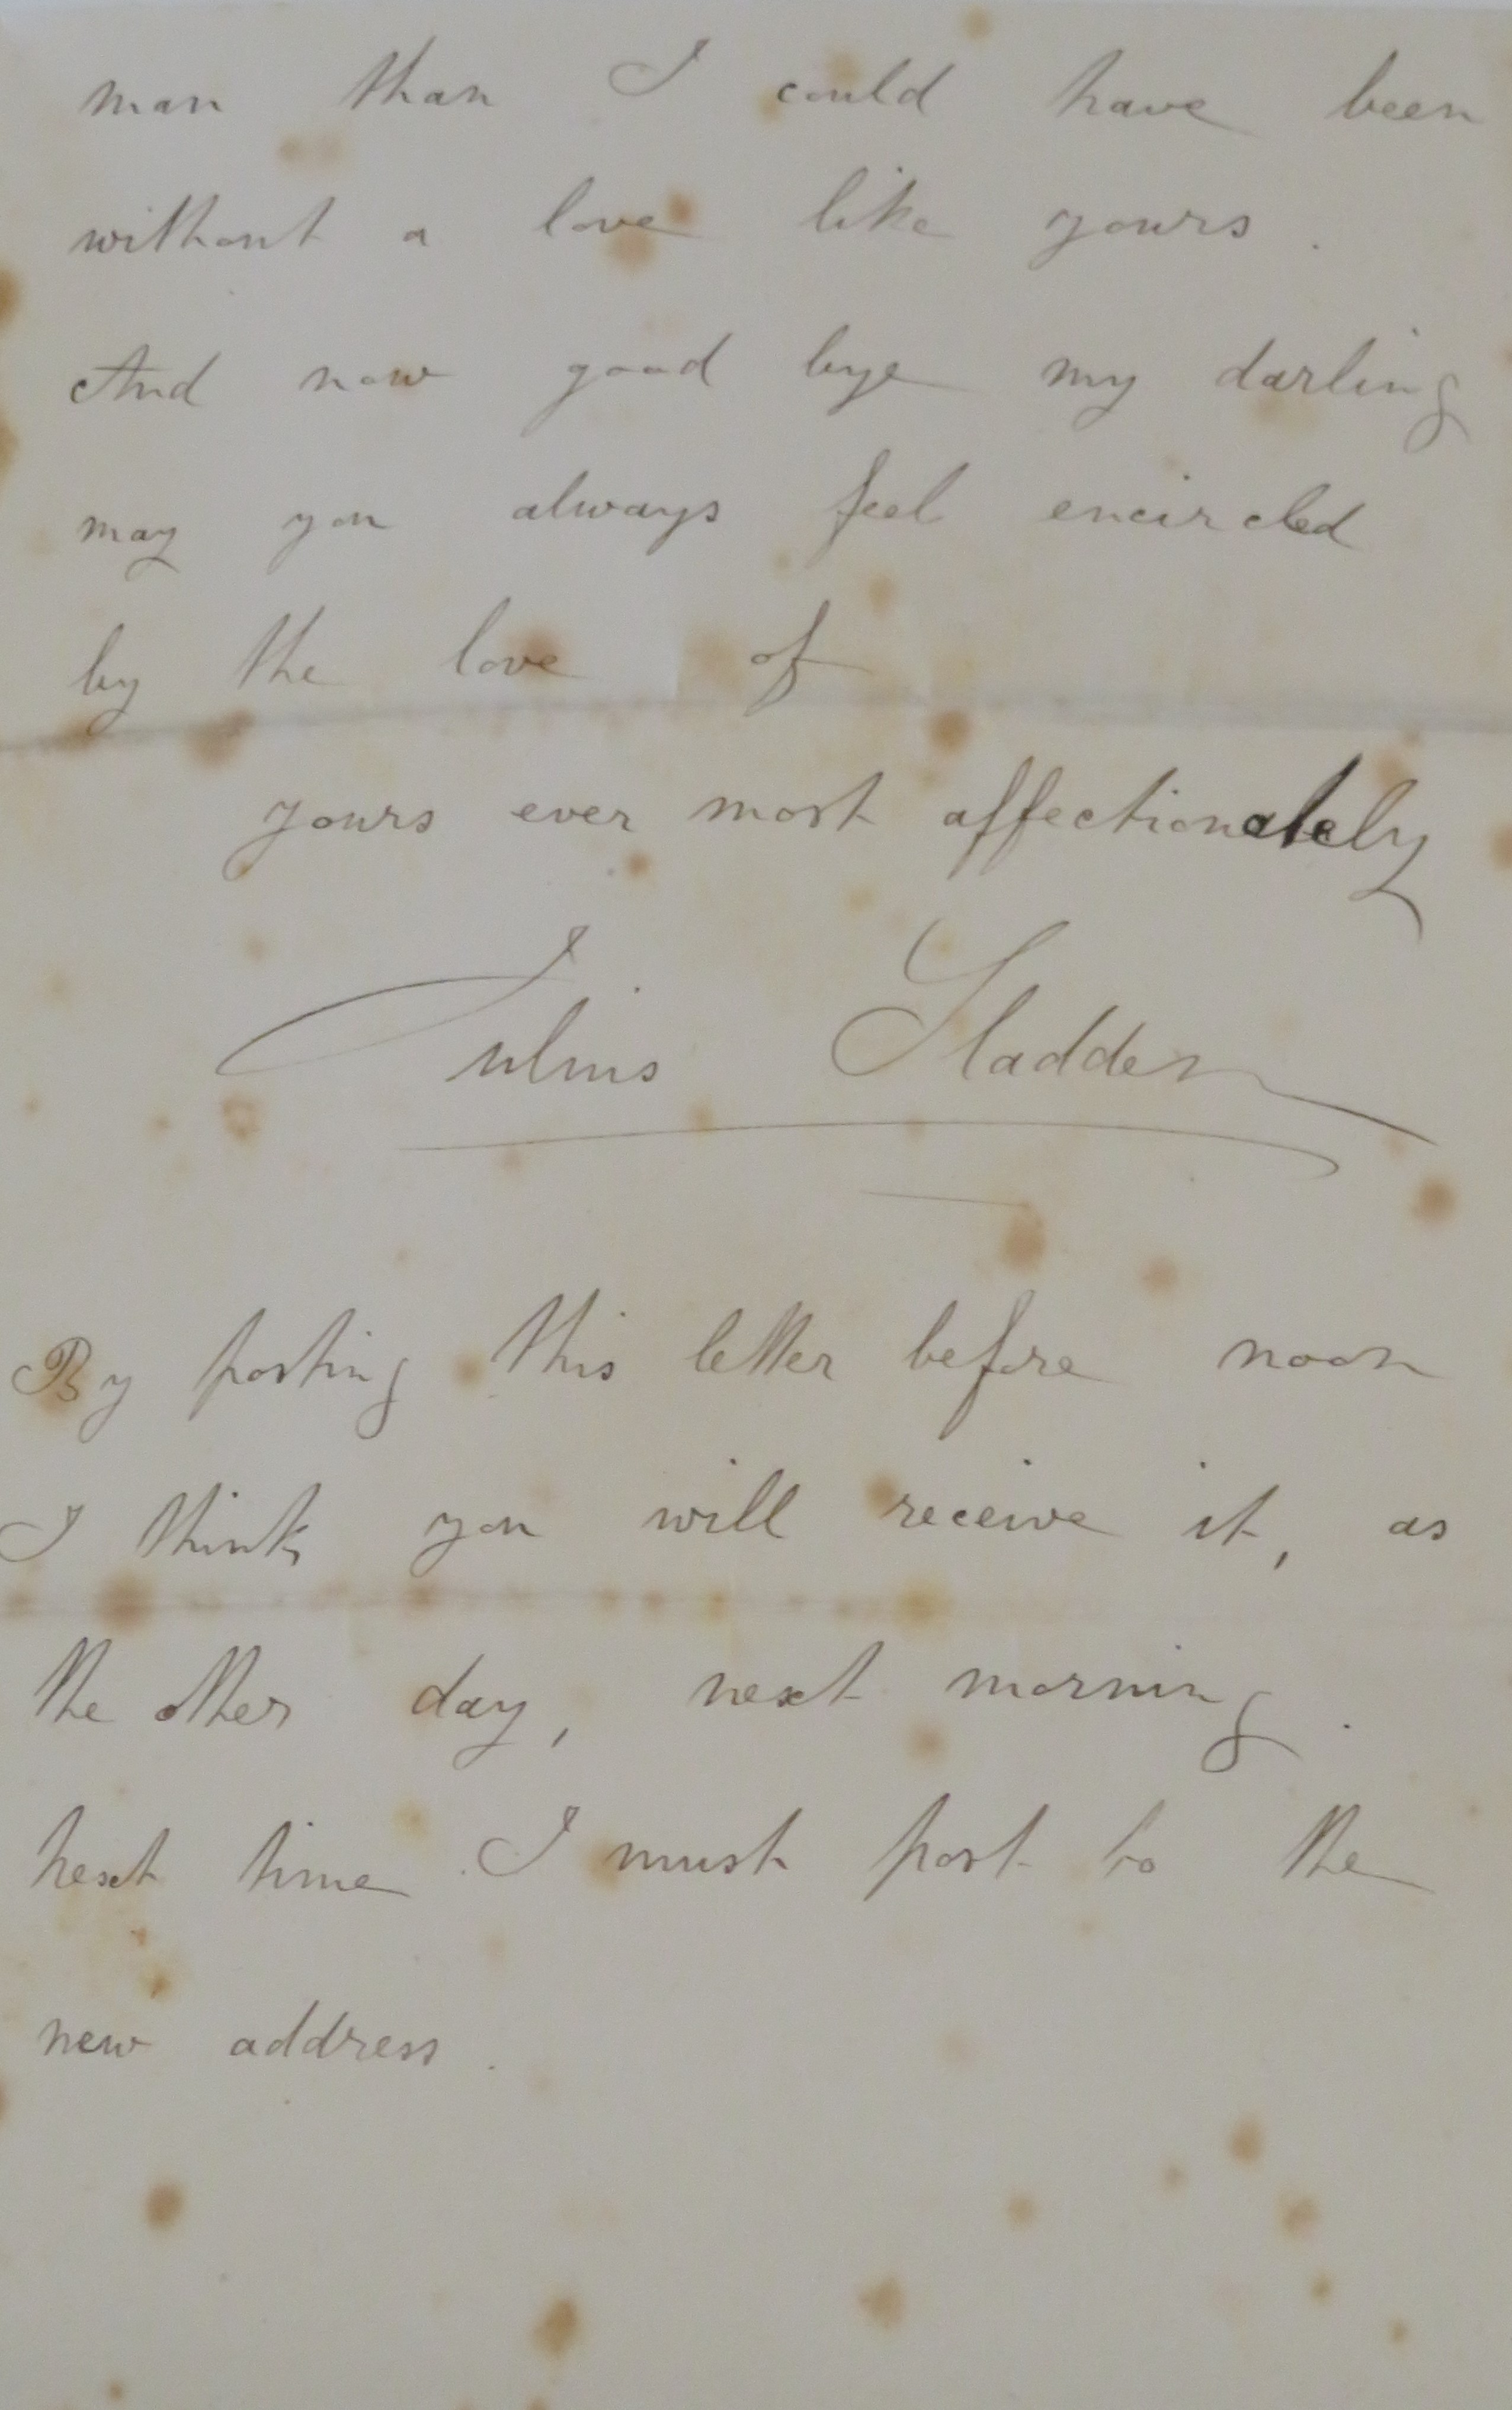 man than I could have been
without a love like yours .
And now good bye my darling
may you always feel encircled
by the love of
yours ever most affectionately
Julius Sladden
By posting this letter before noon
I think you will receive it, as
the other day, next morning .
next time I must post to the
new address .